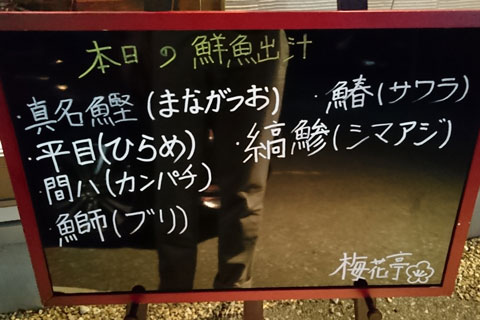 本日の鮮魚出汁
・真名鰹(まながつお)
・平目(ひらめ)
・間八(カンパチ)
・鰤(ブリ)
・鰆(サワラ)
・縞鯵(シマアジ)
梅花亭